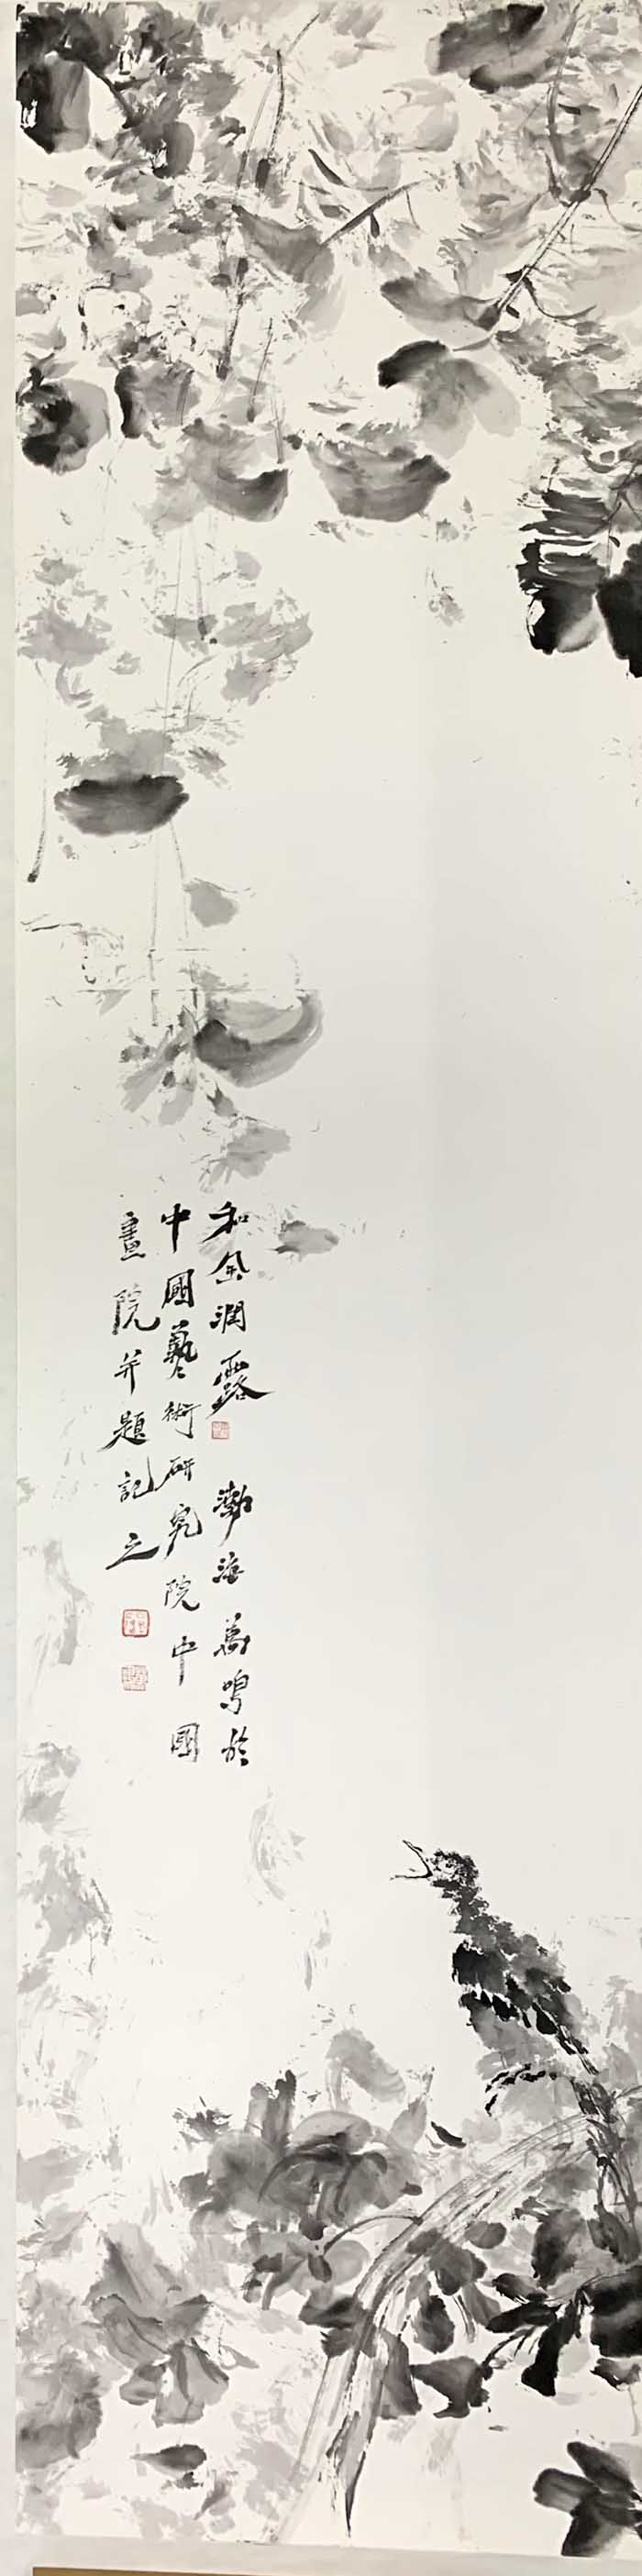 和金润露 渤海萬鳴於
中國藝術研究院中國
畫院并題記之